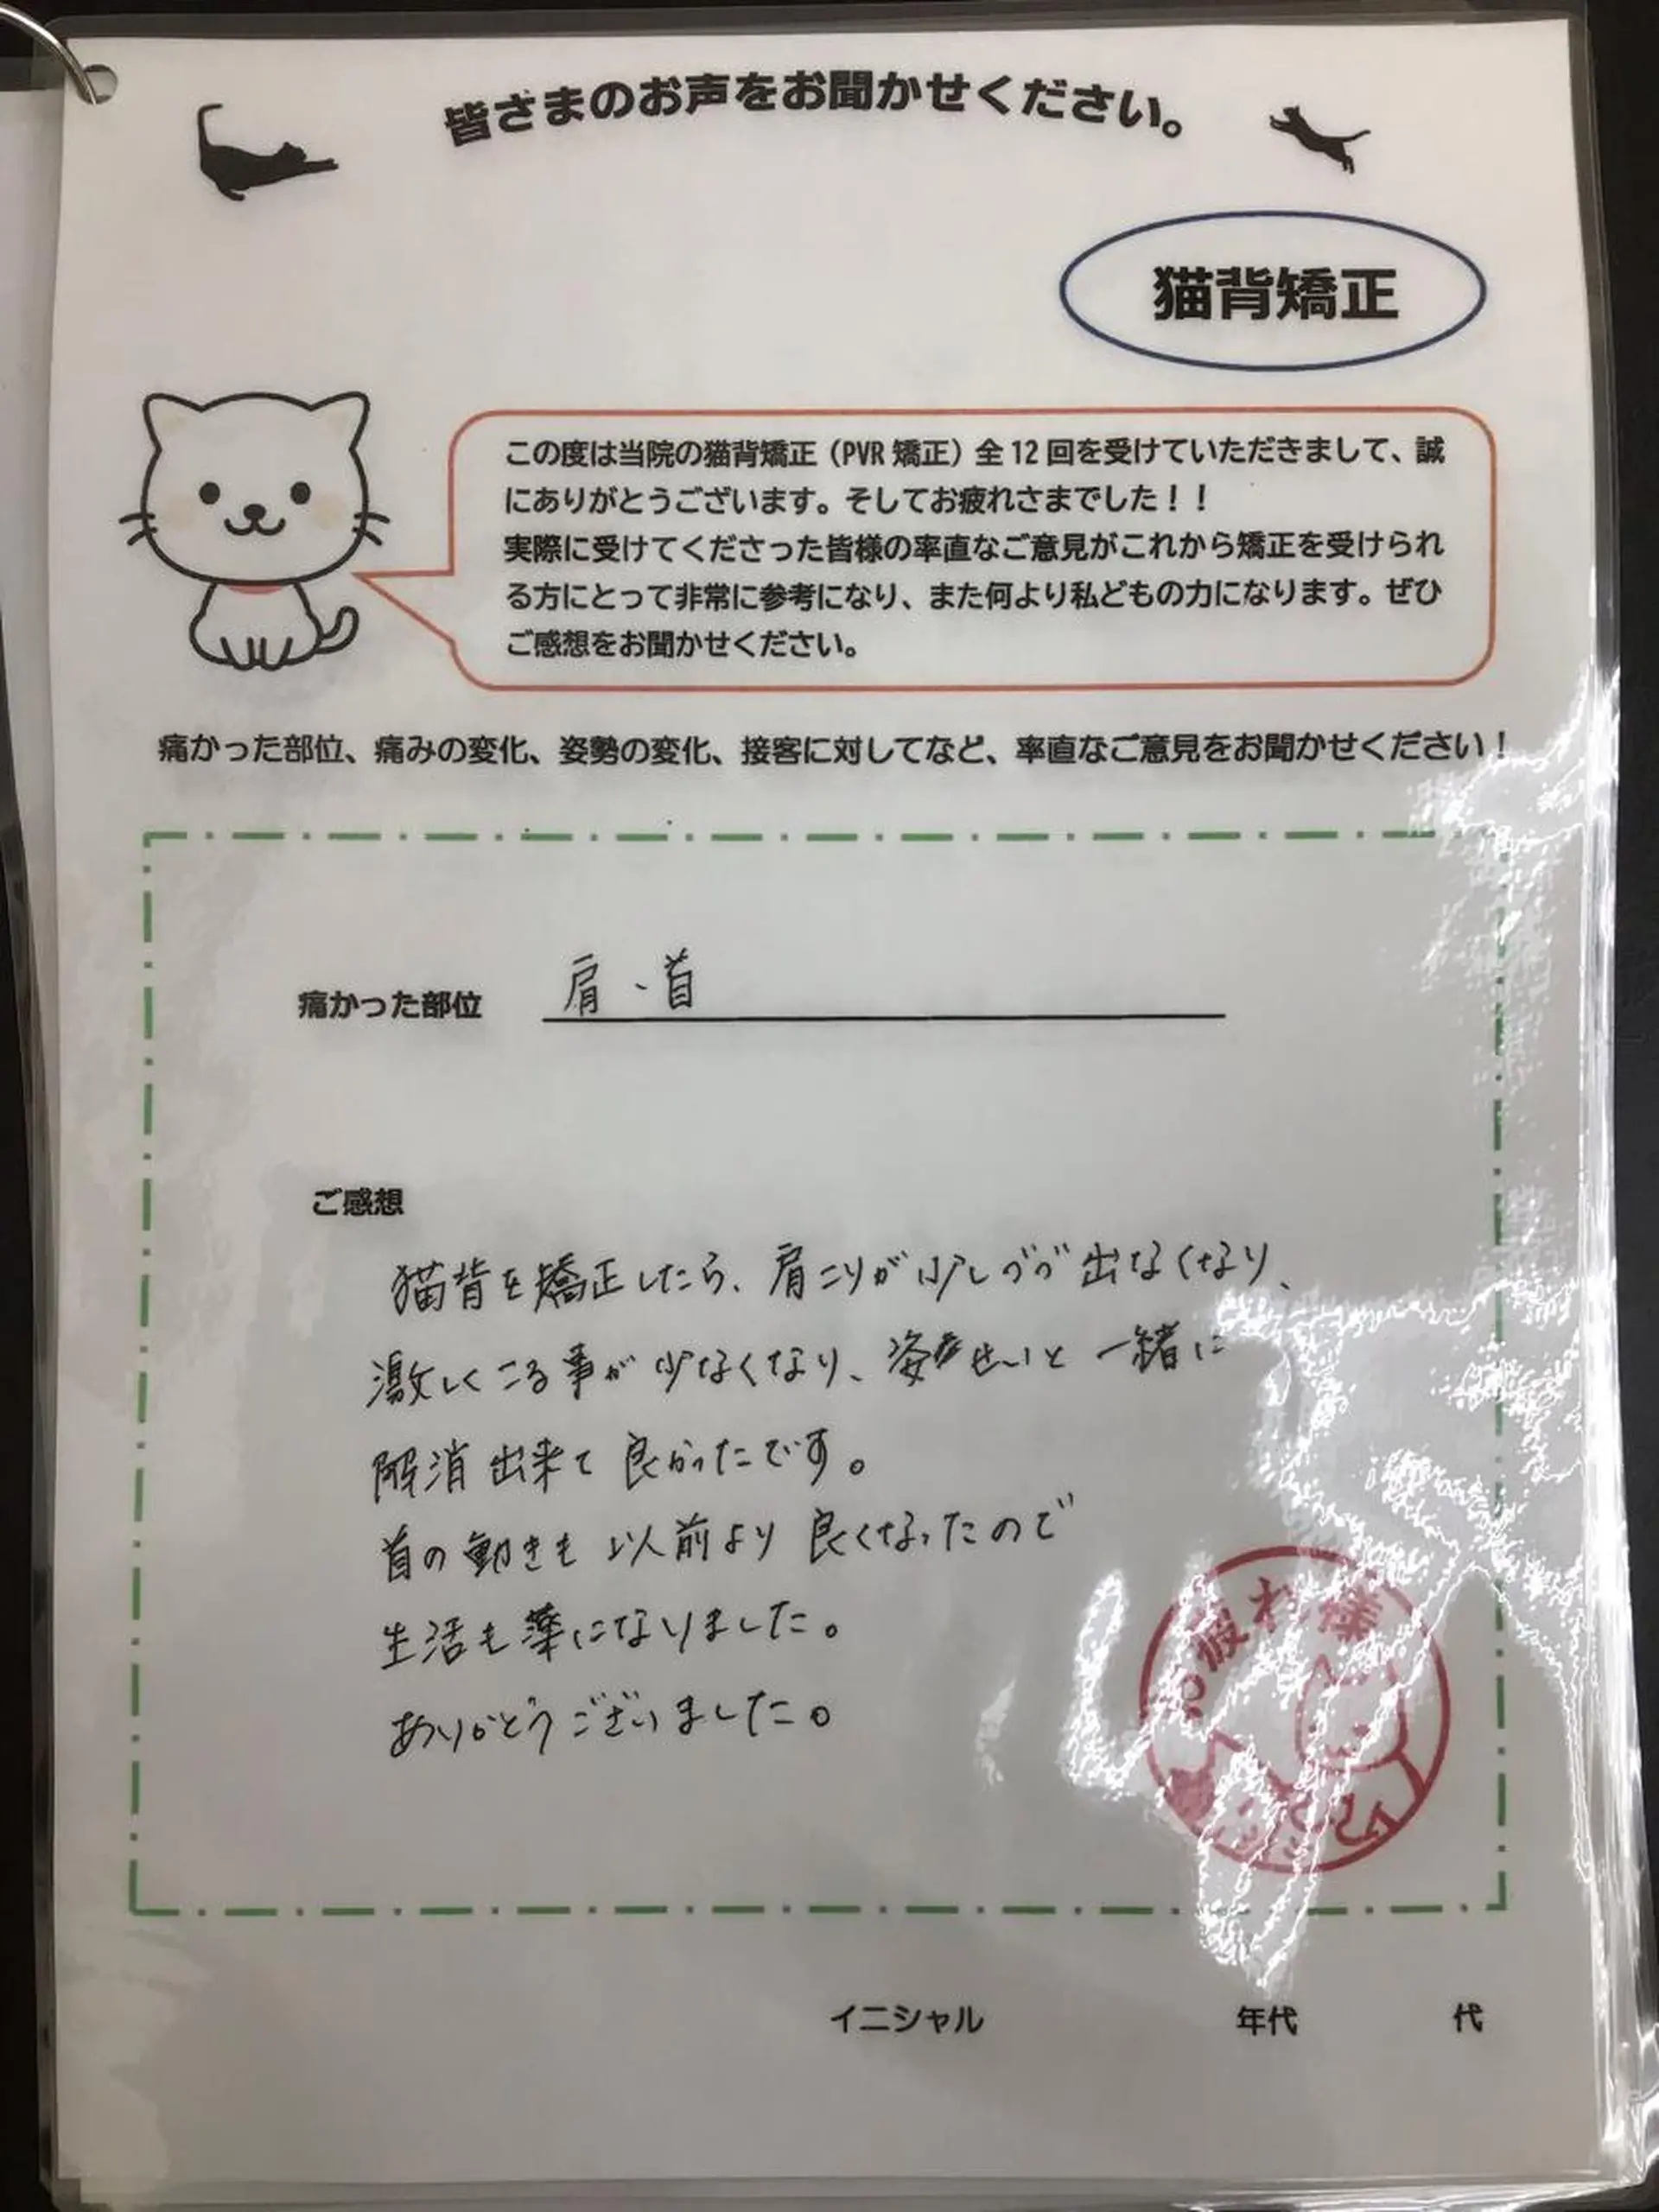 皆さまのお声をお聞かせください。
猫背矯正
この度は当院の猫背矯正（PVR 矯正）全12回を受けていただきまして、誠
にありがとうございます。そしてお疲れさまでした！！
実際に受けてくださった皆様の率直なご意見がこれから矯正を受けられ
る方にとって非常に参考になり、また何より私どもの力になります。ぜひ
ご感想をお聞かせください。
痛かった部位、痛みの変化、姿勢の変化、接客に対してなど、率直なご意見をお聞かせください！
痛かった部位 肩、首
ご感想
猫背を矯正したら、肩こりが少しづづ出なくなり、
激しくこる事が少なくなり、姿せいと一緒に
解消出来て良かったです。
首の動きも以前より良くなったので
生活も薬になりました。
ありがとうございました。
お疲れ様
イニシャル 年代 代